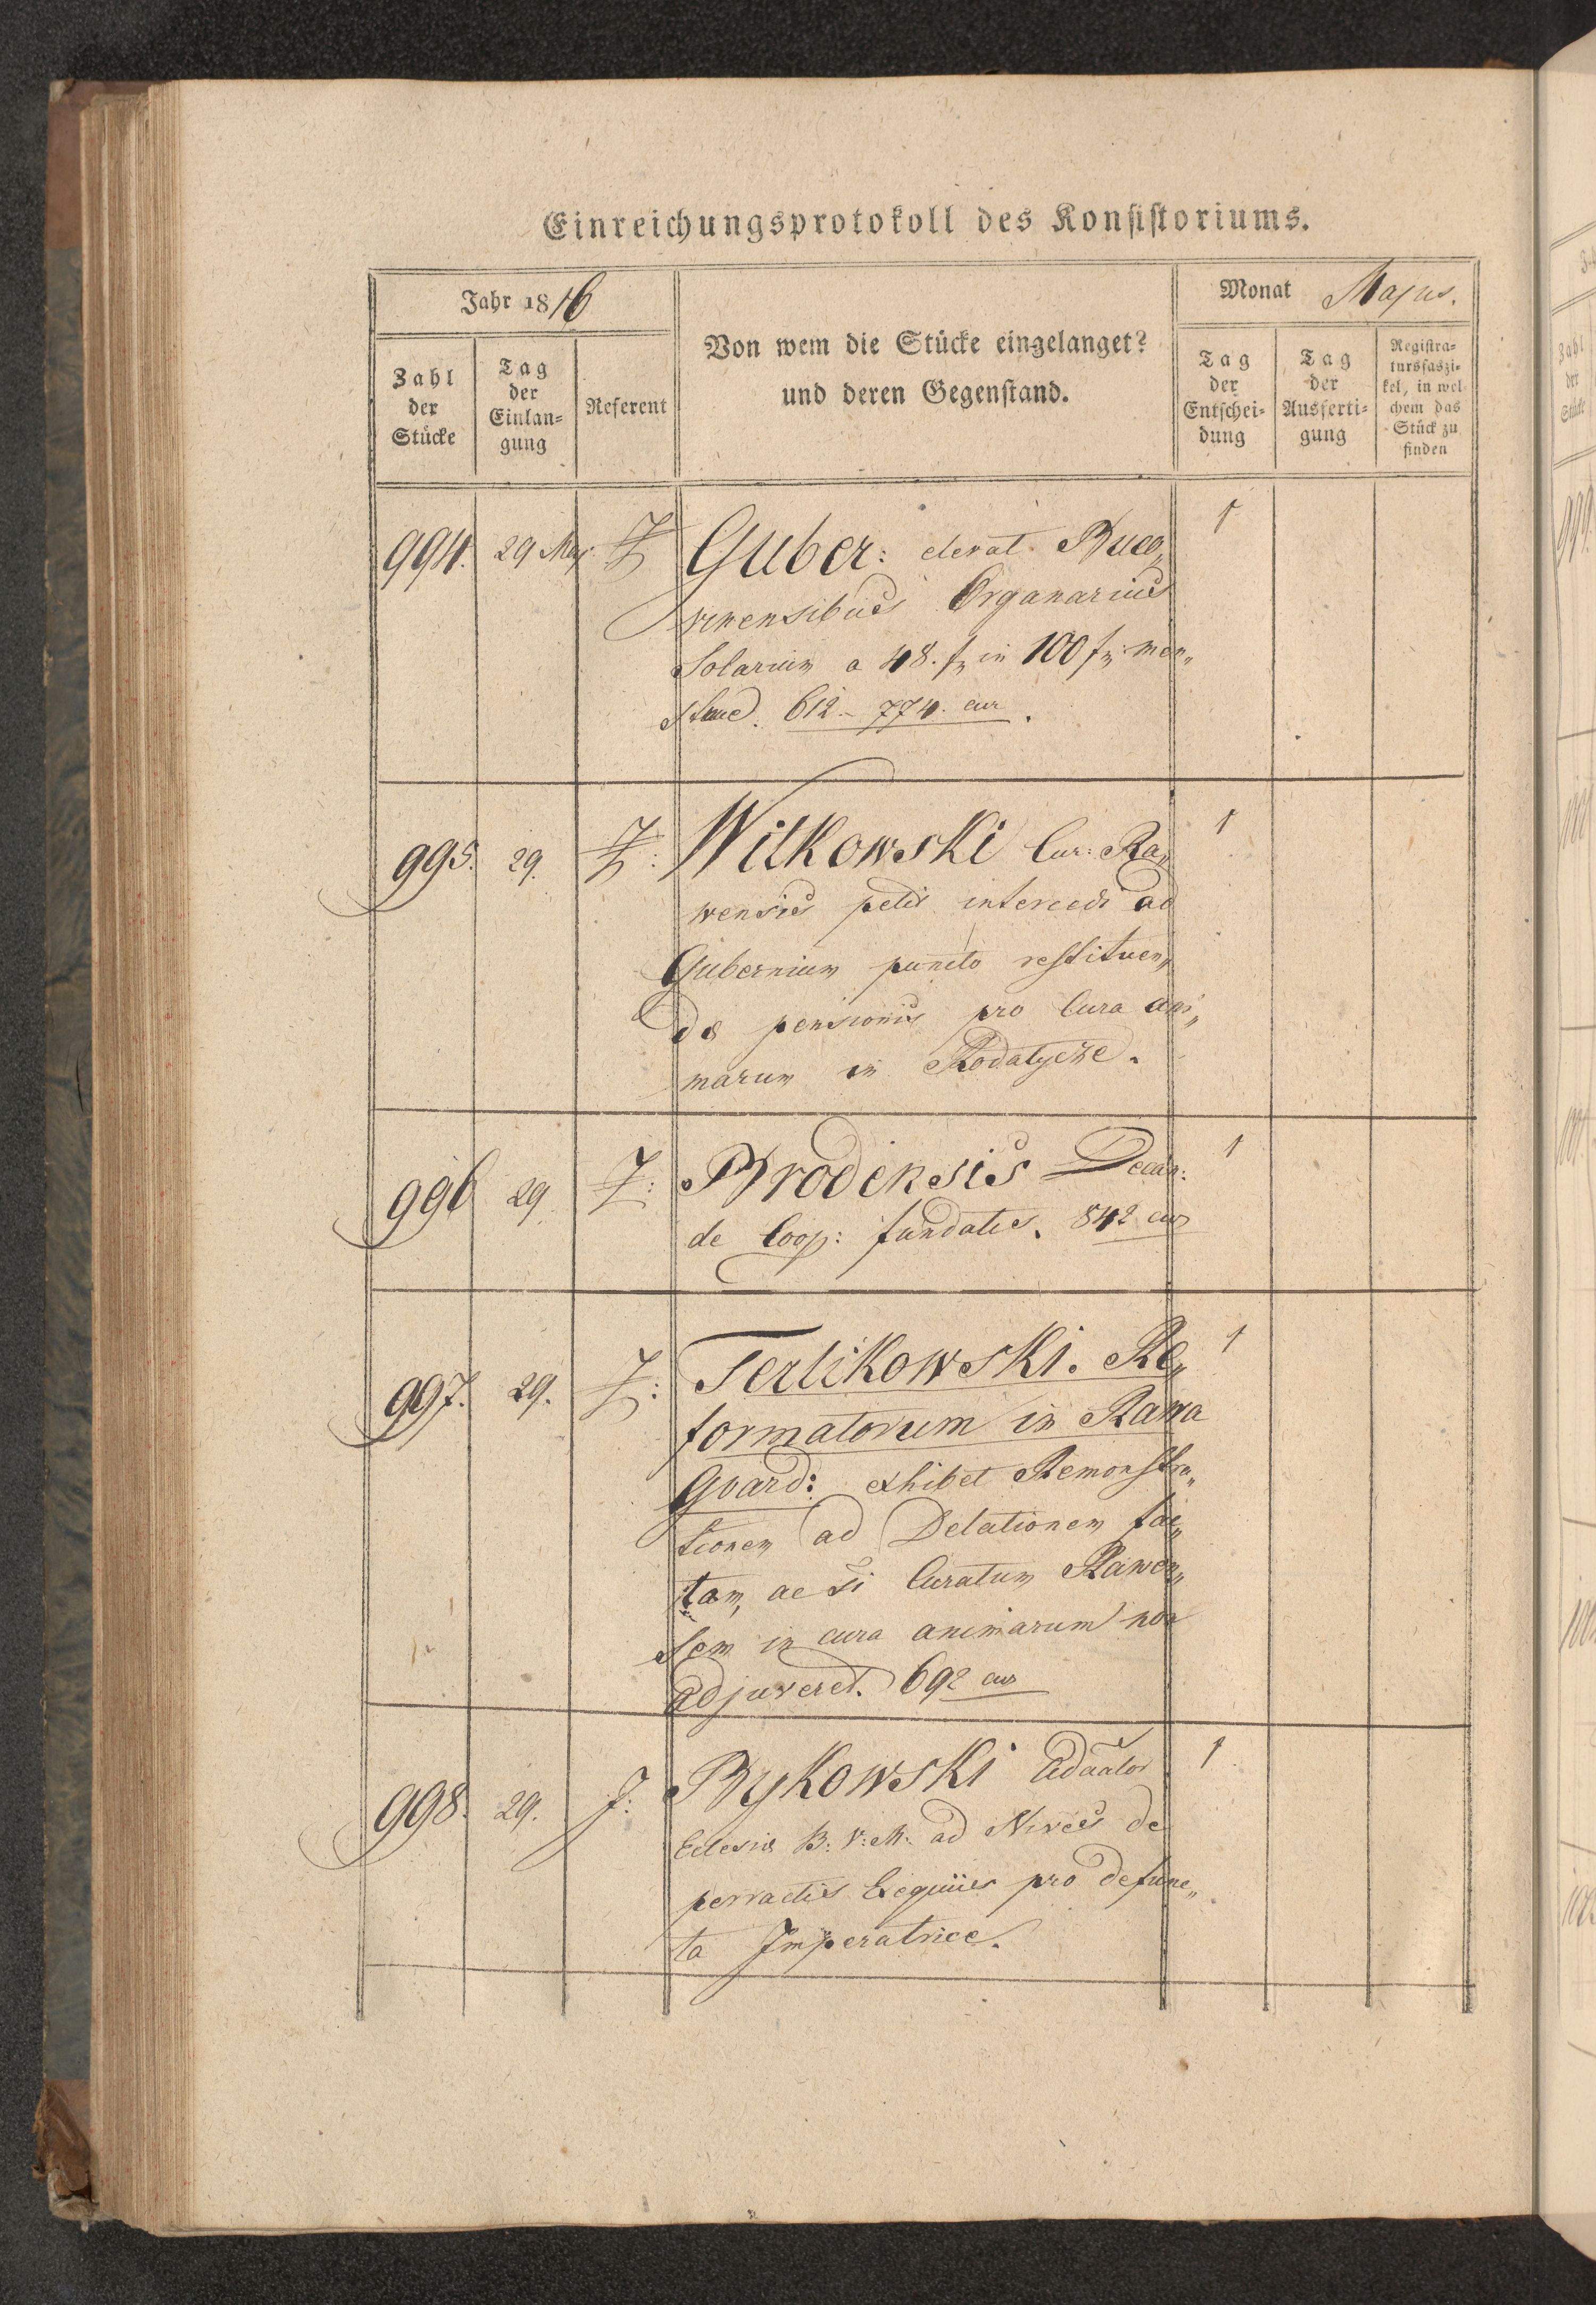 Einreichungsprotokoll des Konsistoriums.
Jahr 1816
Monat Majus.
Zahl der Stücke
Tag der Einlan- gung
Referent
Von wem die Stücke eingelanget?
und deren Gegenstand.
Tag der Entschei- dung
Tag der Ausferti- gung
Registra- tursfaszi- kel, in wel chem das Stück zu finden
994. 29 Maj. Guber: elevat Buco„
vinensibus Organarius
Solarium a 48. f in 100 f men„
612 – 774. cur.
995. 29. Witkowski Cur: Ra„
wensis petit intercedi ad
Gubernium puncto restituen„
dæ pensionis pro Cura ani„
marum in Rodatycze.
996 29 Brodensis Decan:
de Coop: fundatis. 842 cur
997. 29. Terlikowski. Re„
formatorum in Rawa
Guard: exhibet Remonstra„
tionem ad Delationem fac„
tam, ac si Curatum Rawen„
sem in cura animarum non
adjuveret. 692 cur
998. 29. J: Bykowski
Eclesiæ B: V: M: ad Nives de
perractis Exequiis pro defunc„
ta Imperatrice.